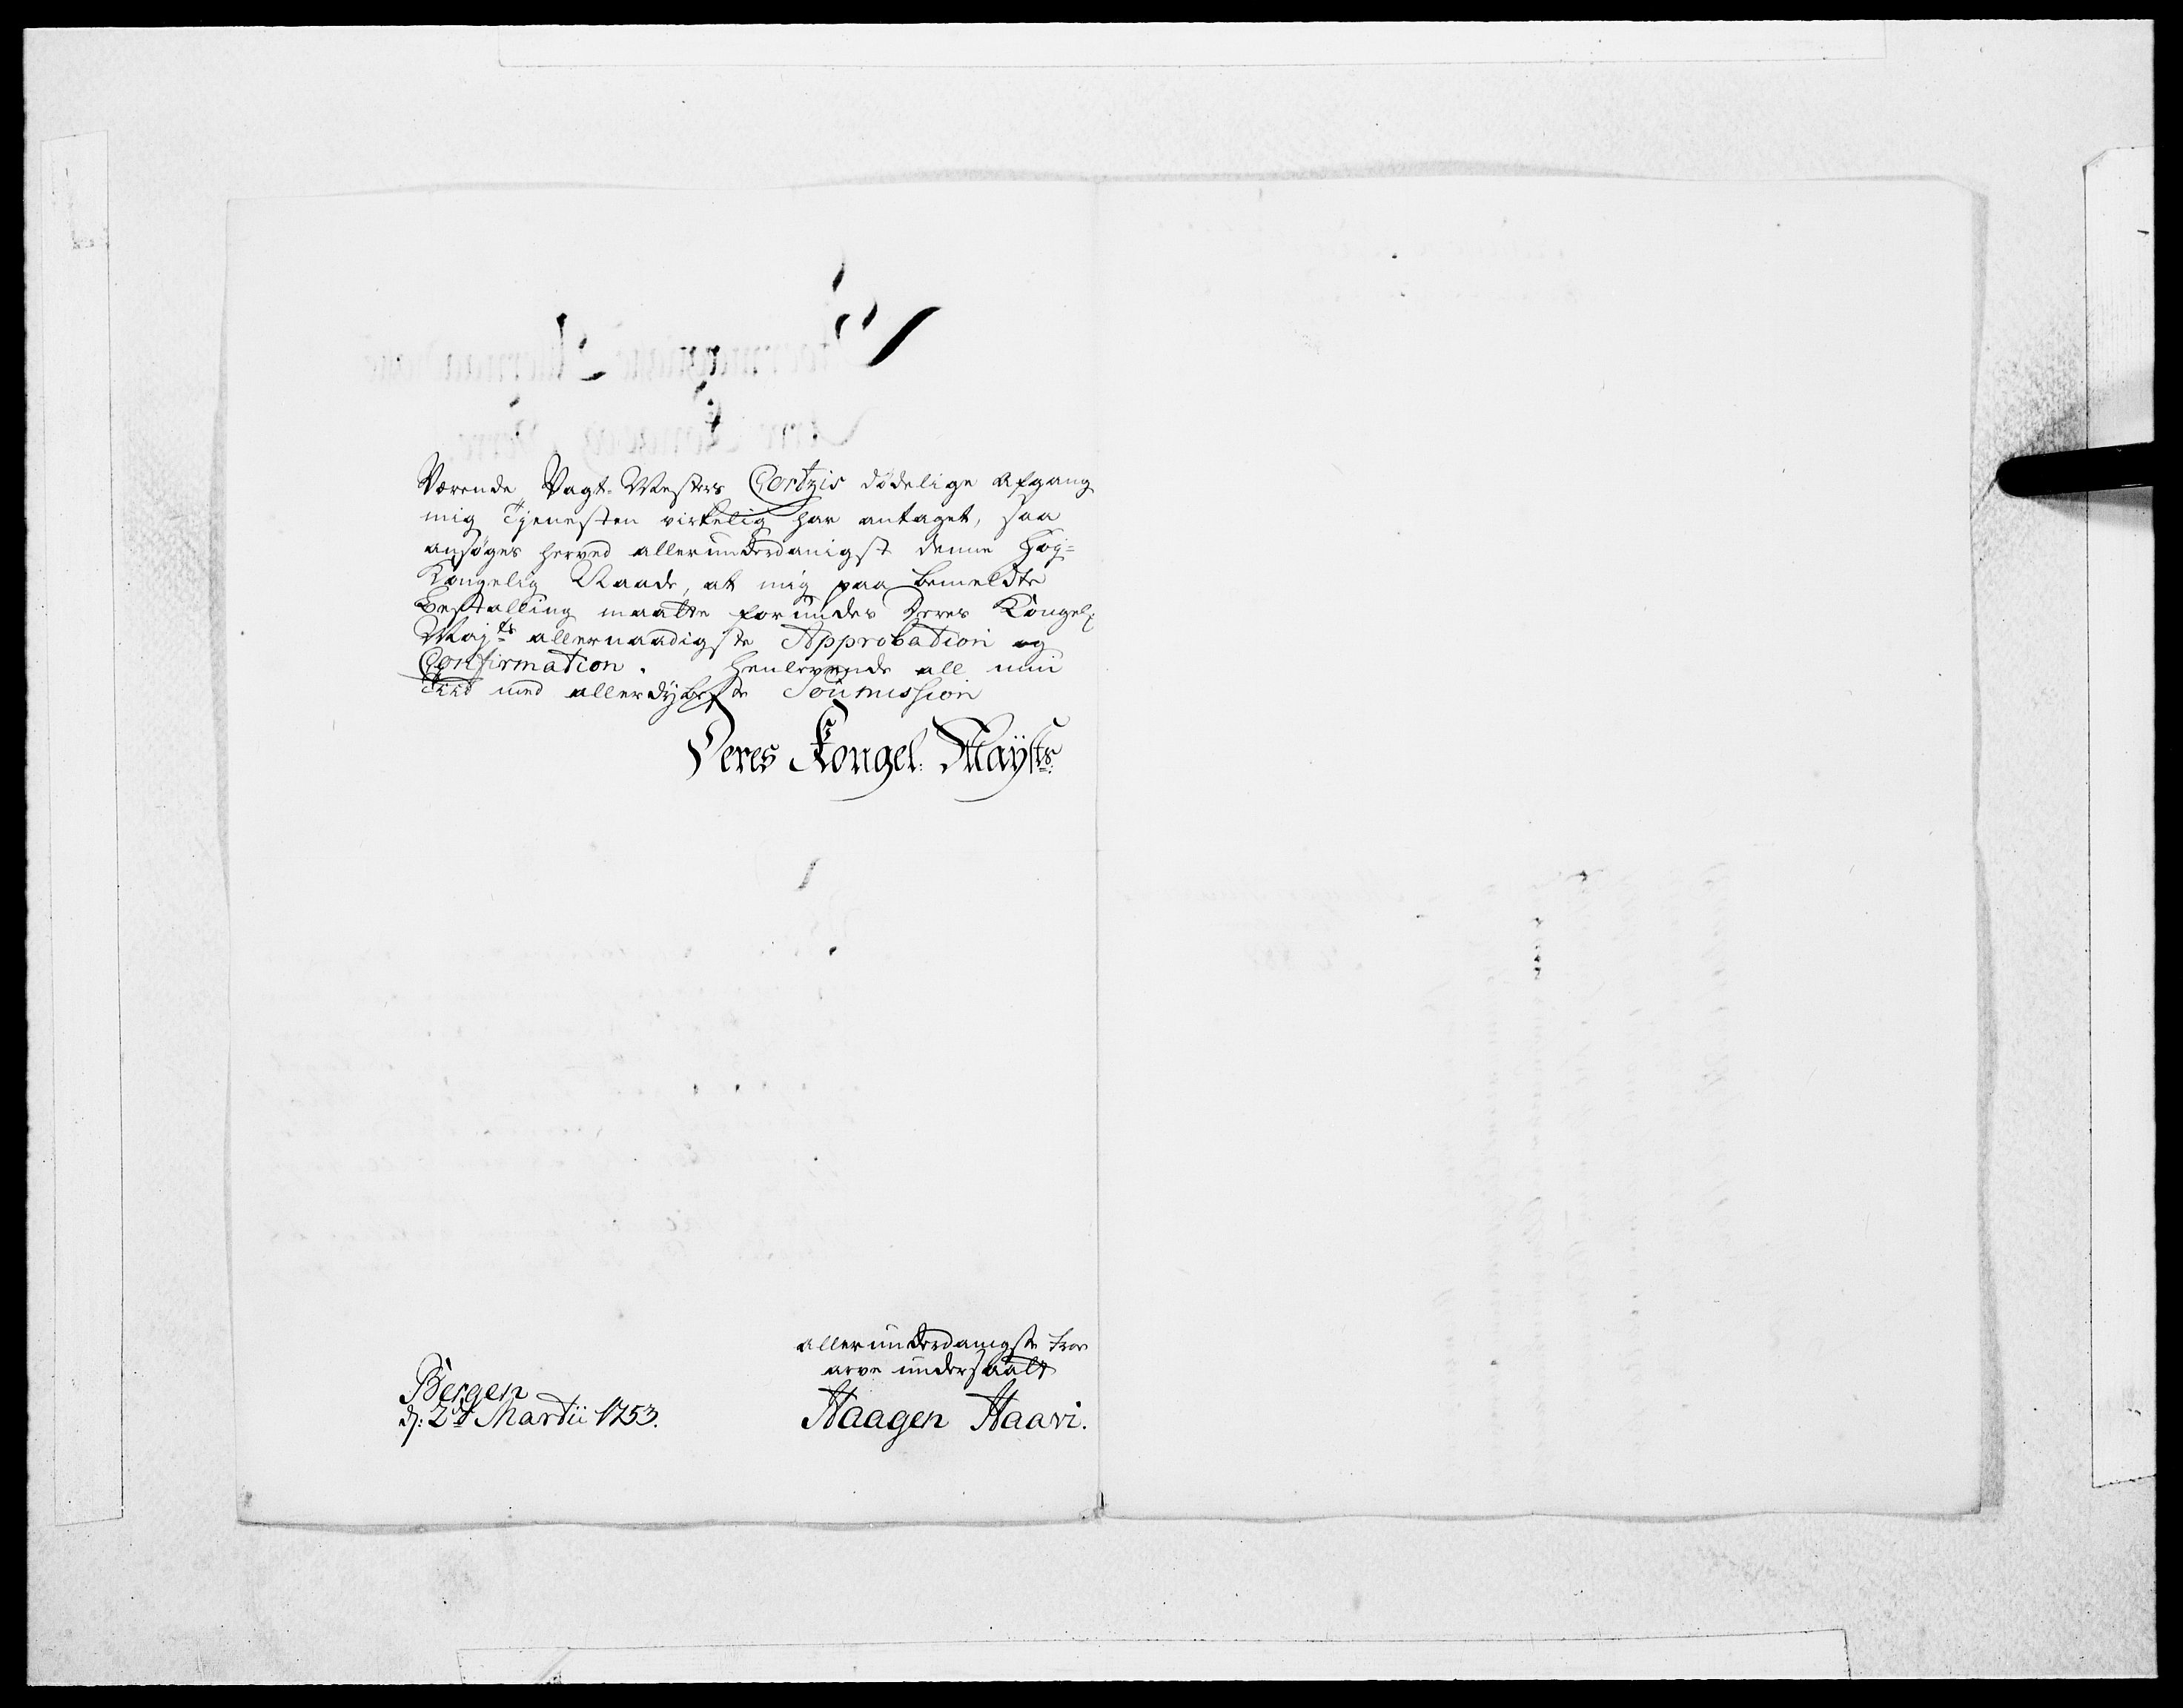 Værende Vagt-Mesters Cortzis dødelige Afgang
mig Tjenesten virkelig har antaget, saa
ansøges herved allerunderdanigst denne Høy-
Kongelig Naade, at mig paa bemeldte
Bestalling maatte forundes Deres Kongel:
Majts allernaadigste Approbation og
Confirmation. Henlevende all min
Tiid med allerdybeste Soumission
Deres Kongel: Mayts:
allerunderdanigste troe
arve undersaatt
Bergen
d: 2d Martii 1753.
Haagen Haavi.